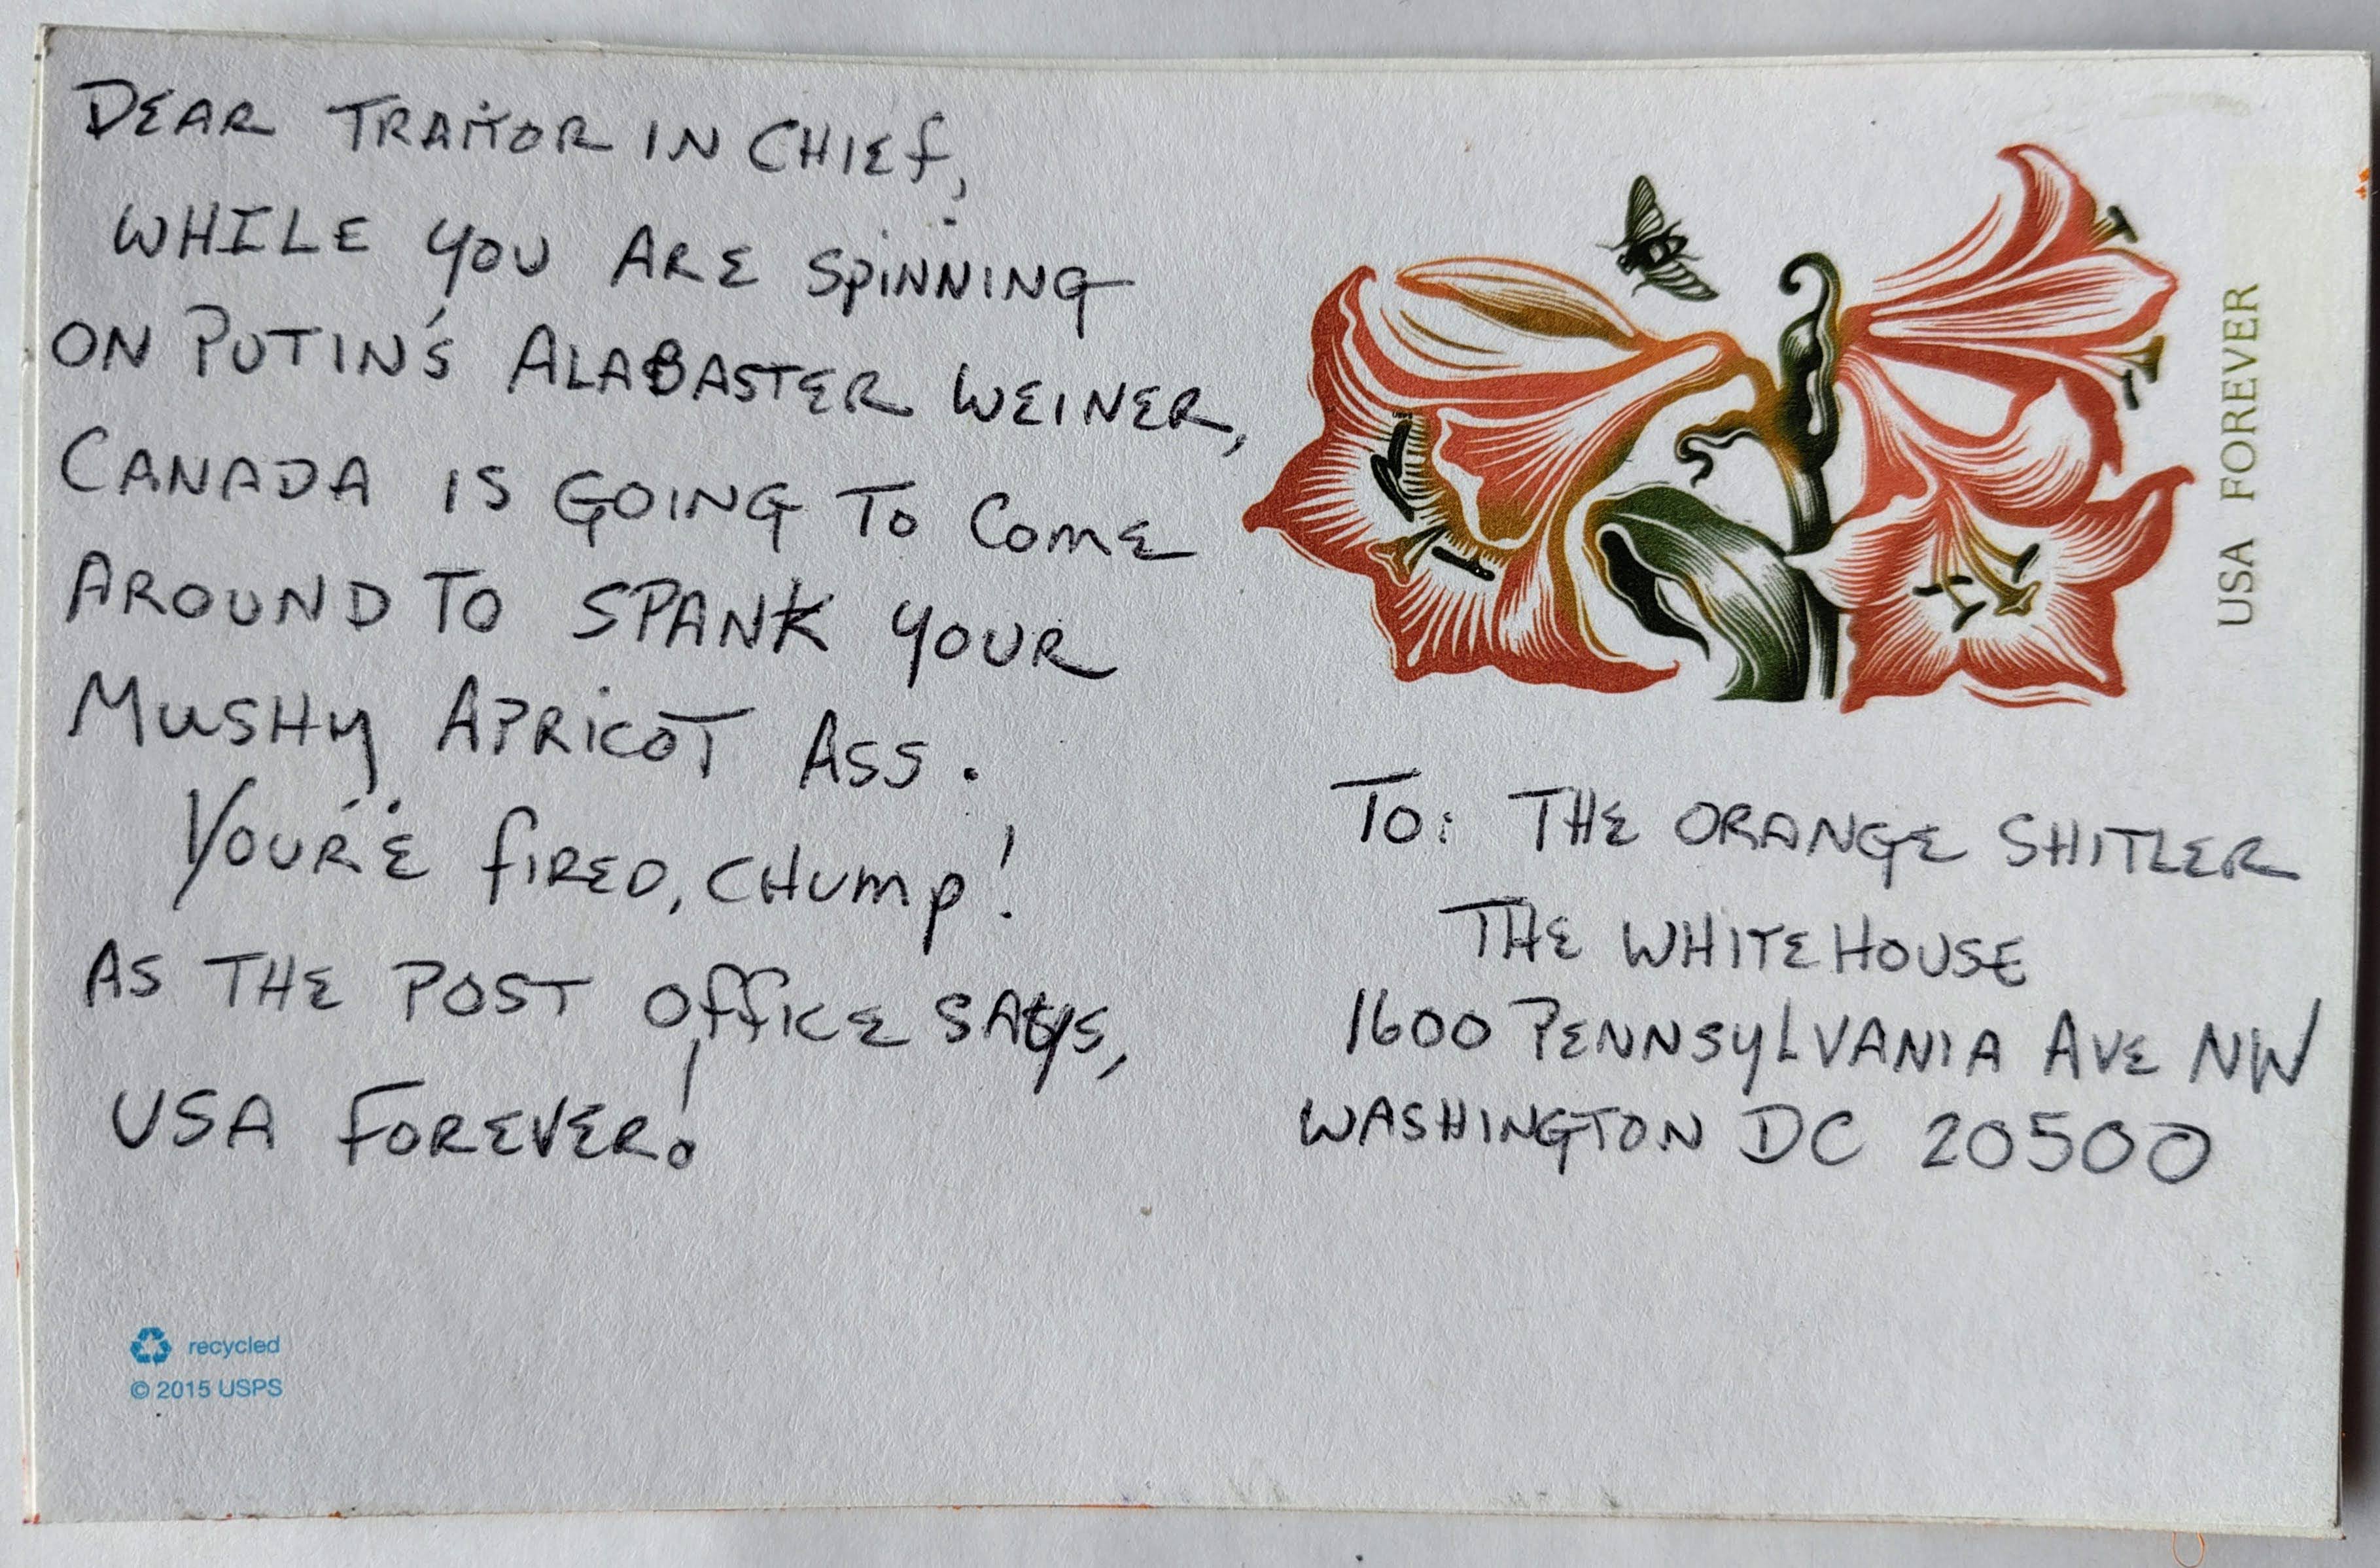 DEAR TRAITOR IN CHIEF,
WHILE YOU ARE SPINNING
ON PUTIN'S ALABASTER WEINER,
CANADA IS GOING TO COME
AROUND TO SPANK YOUR
MUSHY APRICOT ASS.
YOUR'E FIRED, CHUMP!
AS THE POST OFFICE SAYS,
USA FOREVER!
recycled
© 2015 USPS
USA FOREVER
TO: THE ORANGE SHITLER
THE WHITEHOUSE
1600 PENNSYLVANIA AVE NW
WASHINGTON DC 20500